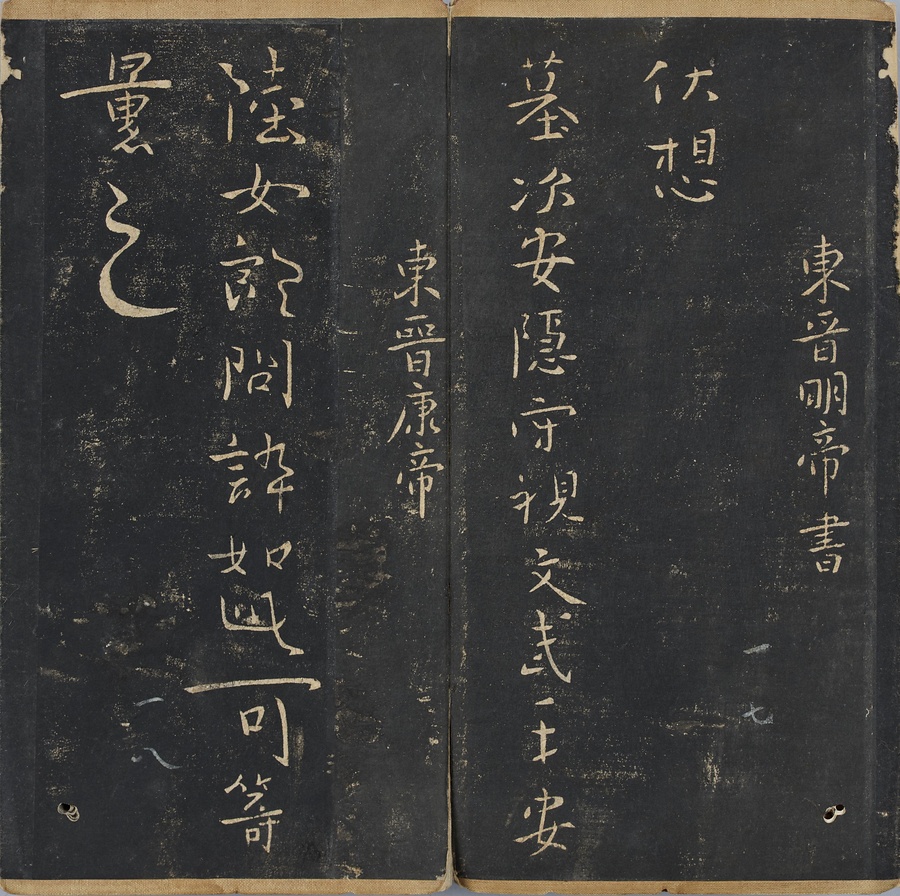 東晉明帝書
伏想
一七
墓次安隱守視文武一十安
東晉康帝
陸女郎問誶如此可笴
之
一八